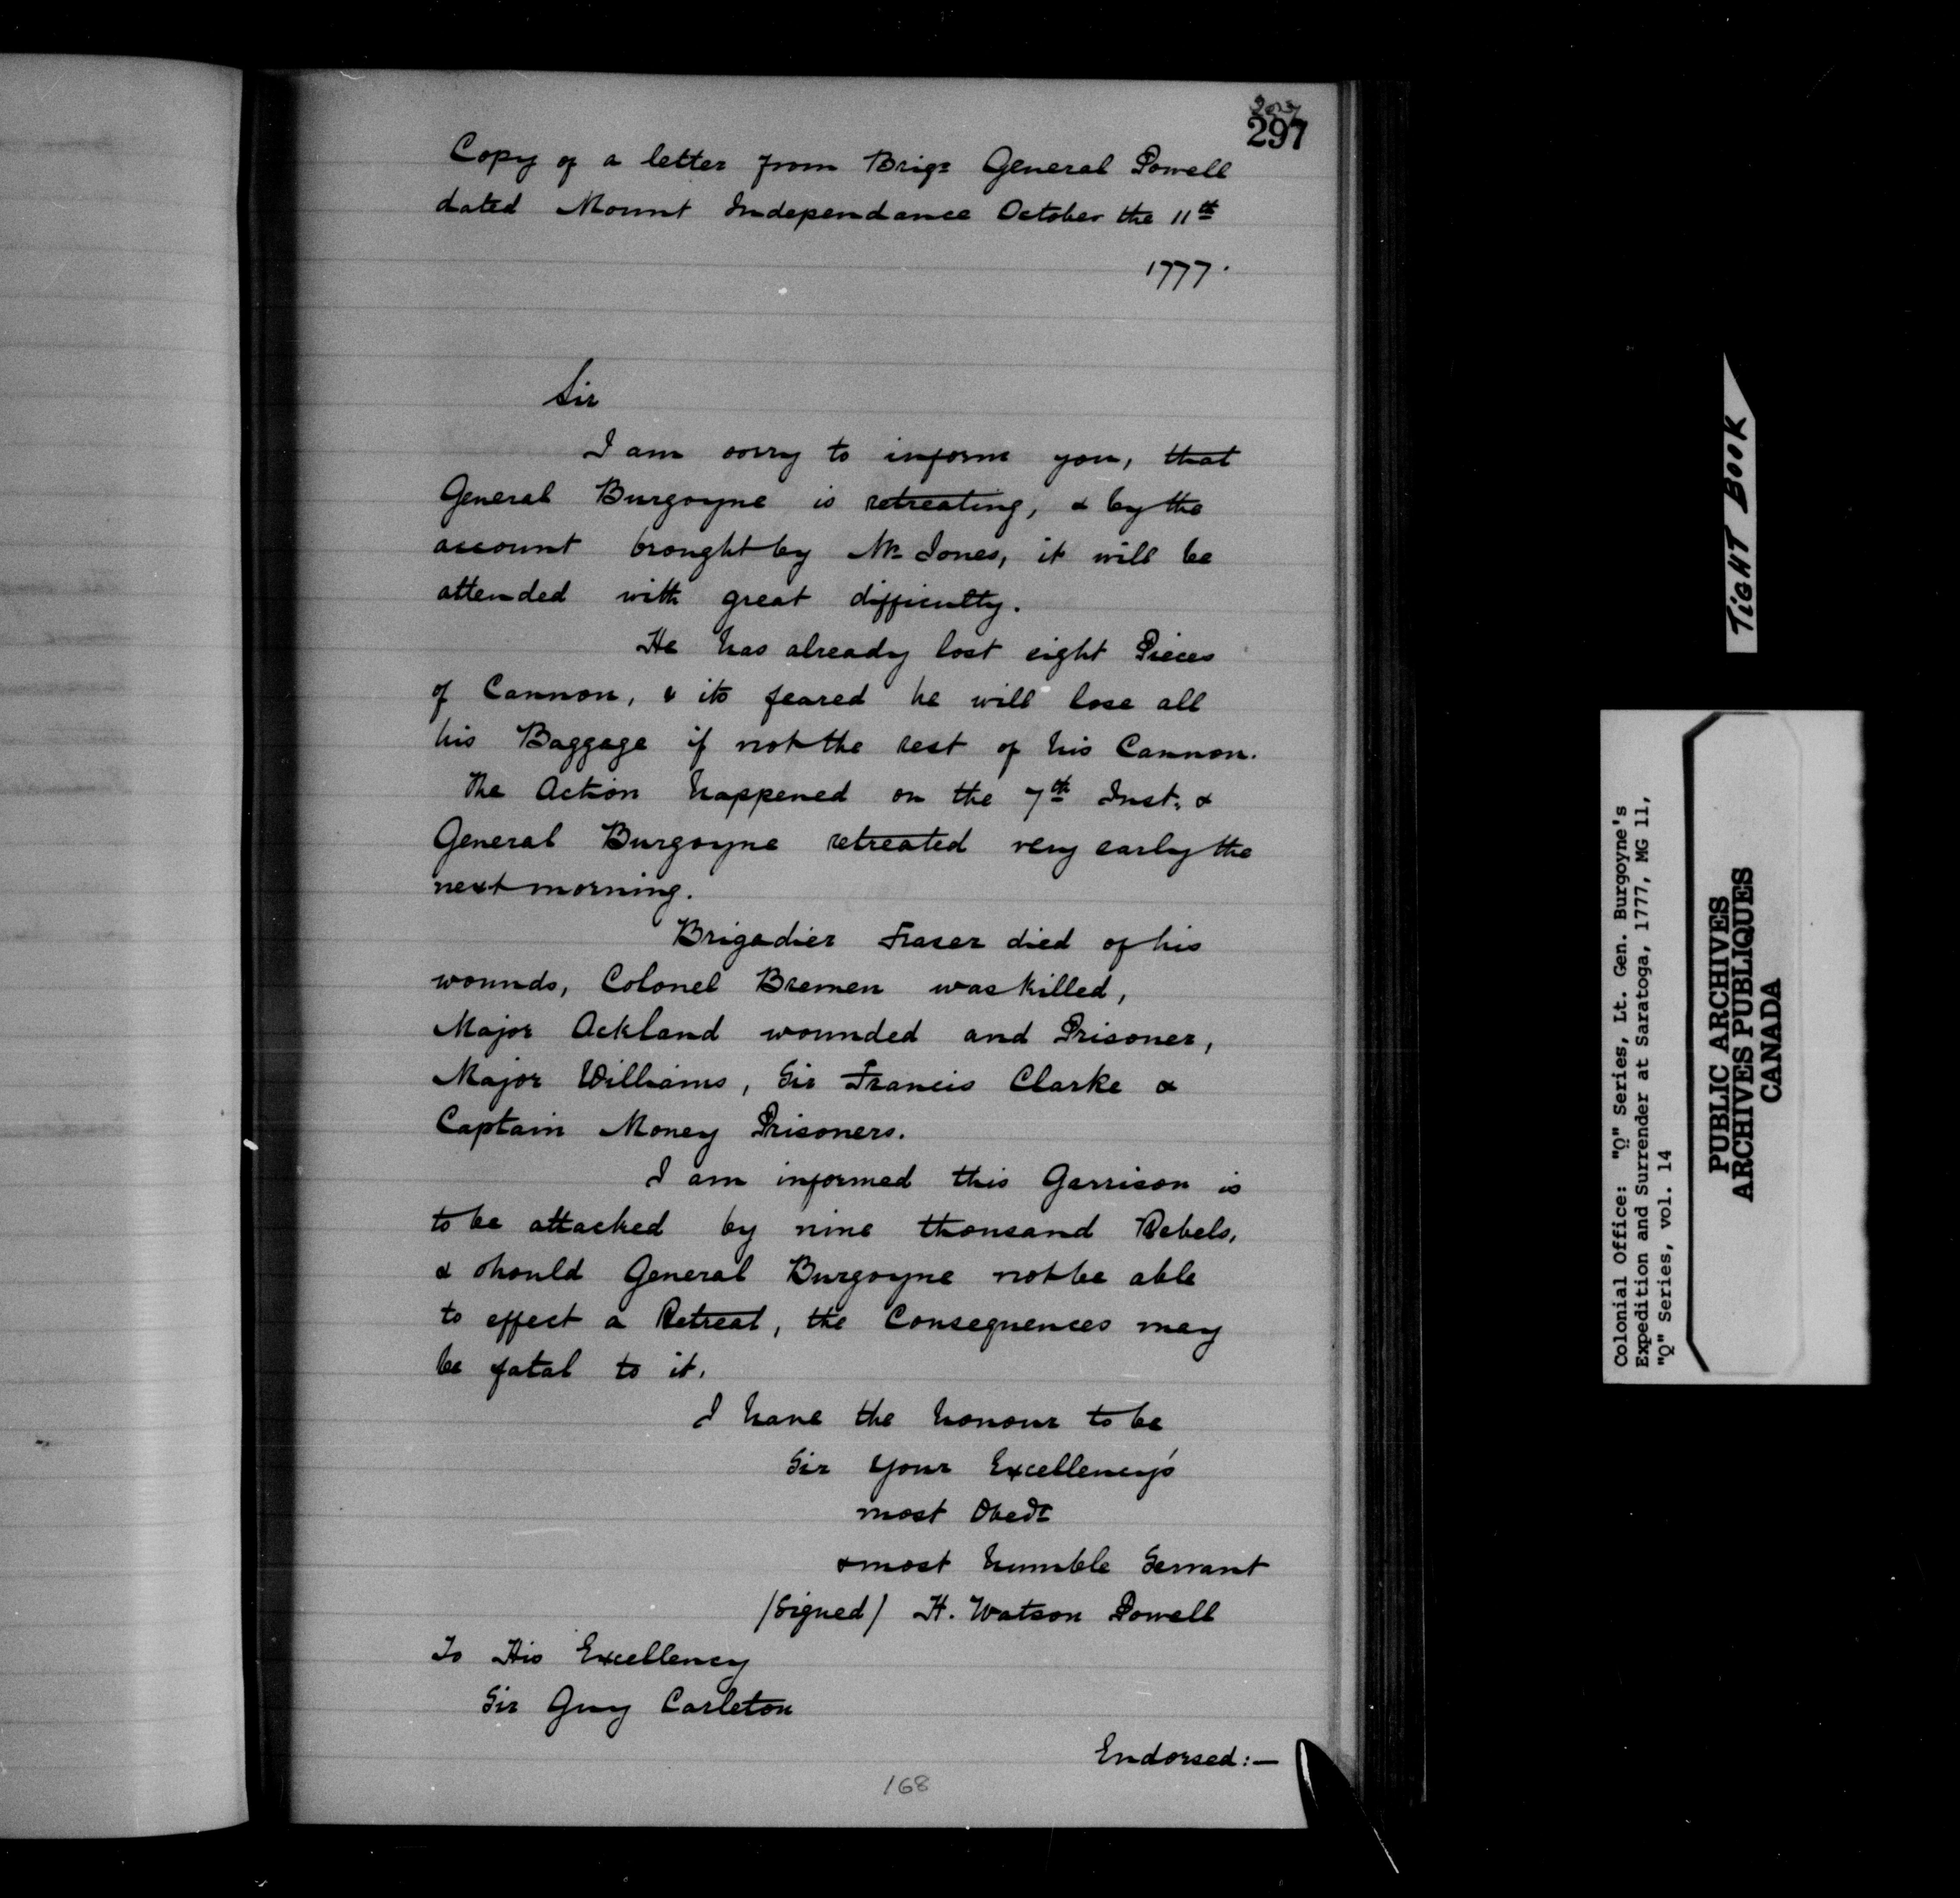 297
Copy of a letter from Brigr General Powell
dated Mount Independance October the 11th
1777.
Sir
I am sorry to inform you, that
General Burgoyne is retreating, & by the
account brought by Mr Jones, it will be
attended with great difficulty.
He has already lost eight Pieces
of Cannon, & its feared he will lose all
his Baggage if not the rest of his Cannon.
The Action happened on the 7th Inst. &
General Burgoyne retreated very early the
next morning.
Brigadier Fraser died of his
wounds, Colonel Bremen was killed,
Major Ackland wounded and Prisoner,
Major Williams, Sir Francis Clarke &
Captain Money Prisoners.
I am informed this Garrison is
to be attacked by nine thousand Rebels,
& should General Burgoyne not be able
to effect a Retreat, the Consequences may
be fatal to it.
I have the honour to be
Sir Your Excellency's
most Obedt
& most humble Servant
/Signed/ H. Watson Powell
To His Excellency
Sir Guy Carleton
Endorsed:—
168
TIGHT BOOK
Colonial Office: "Q" Series, Lt. Gen. Burgoyne's
Expedition and Surrender at Saratoga, 1777, MG 11,
"Q" Series, vol. 14
PUBLIC ARCHIVES
ARCHIVES PUBLIQUES
CANADA